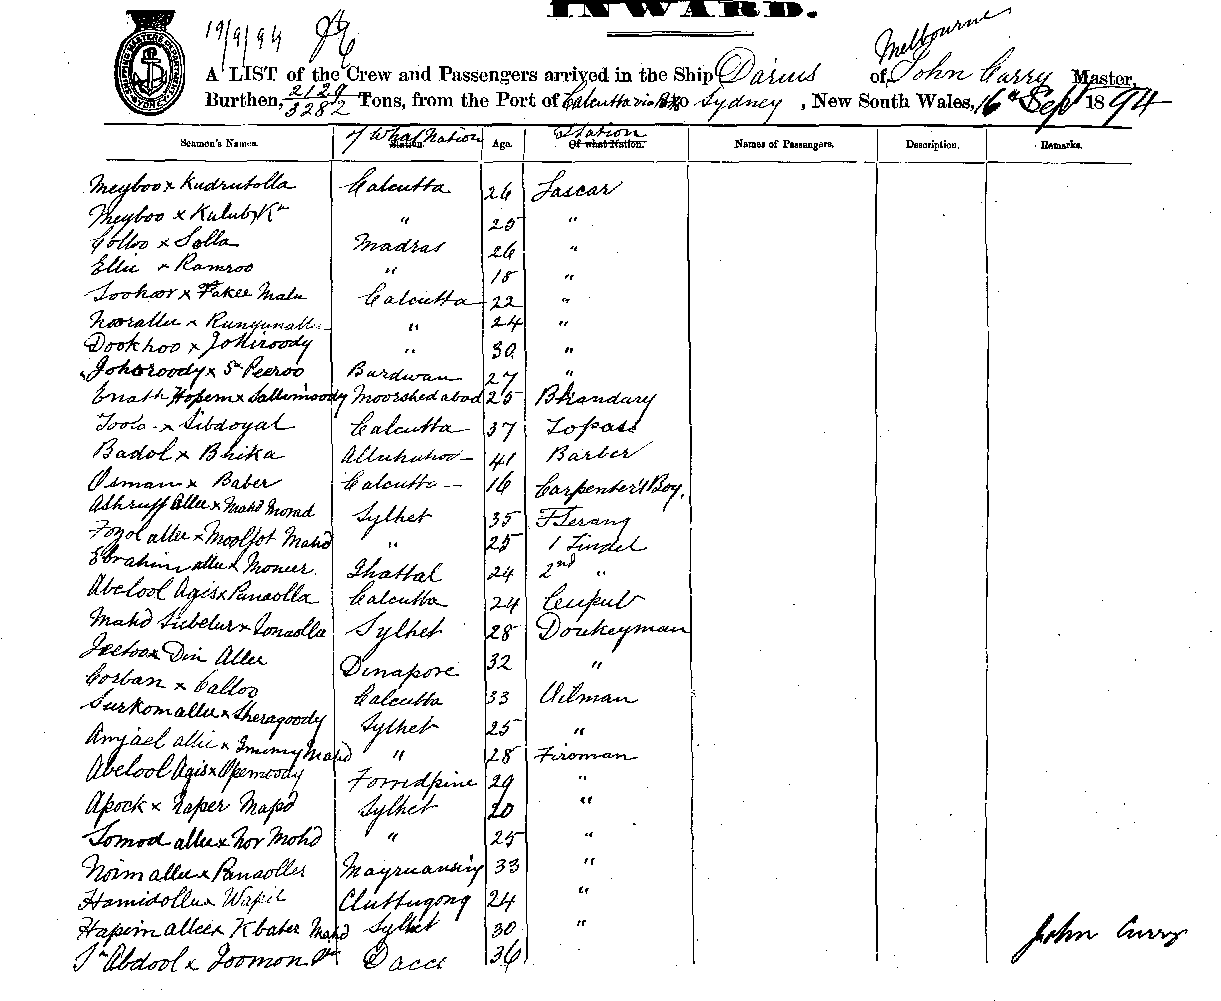 INWARD.
19/9/94
Melbourne
A LIST of the Crew and Passengers arrived in the Ship Darius of, John Curry Master,
Burthen, 2129/3282 Tons, from the Port of Calcutta via to Sydney, New South Wales, 16th Sept 1894
Seamen's Names. of What Nation Station. Age. Station Of what Nation. Names of Passengers. Description. Remarks.
Meyboo x Kudrutolla Calcutta 26 Lascar
Meyboo x Kulub Kn " 25 "
Colloo x Solla Madras 26 "
Ellie x Ramroo " 18 "
Soohoor x Fakee Malu Calcutta 22 "
Noorallee x " 24 "
Dookhoo x Johiroody " 30 "
Johoroody x Sn Peeroo Burdwan 27 "
Enath Hosein x Sallimoody Moorshedabad 25 Bhandary
Toola x Sibdoyal Calcutta 37 Topass
Badol x Bhika 41 Barber
Osman x Baber Calcutta 16 Carpenter's Boy.
Ashruff Allee x Mahd Morad Sylhet 35 F Serang
Fozol allee x Mahd " 25 1 Tindel
Ebrahim allee x Moneer. Ghattal 24 2nd "
Abdool Agis x Panaolla Calcutta 24
Mahd x Sonaolla Sylhet 28 Donkeyman
x Din Allee Dinapore 32 "
Corban x Calloo Calcutta 33 Oilman
Surkom allee x Sheragoody Sylhet 25 "
Amjael allie x Mahd " 28 Fireman
Abdool Agis x Opemoody Forridpine 29 "
Apock x Naper Mapd Sylhet 20 "
Somod allee x Nor Mohd " 25 "
Noim allee x Panaoller 33 "
Hamidolla x Wapil Chittugong 24 "
Hapim allee x Kbater Mahd Sylhet 30 "
John Curry
Sn Abdool x Joomon Sn Dacca 36